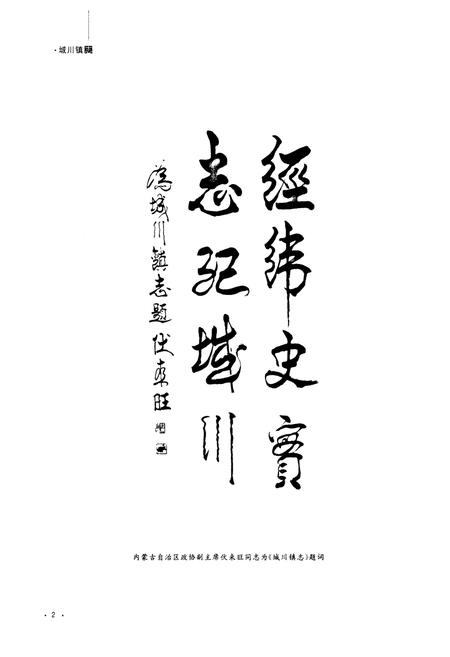 ·城川镇志
經緯史實
志記城川
為城川鎮志題 伏來旺
内蒙古自治区政协副主席伏来旺同志为《城川镇志》题词
· 2 ·